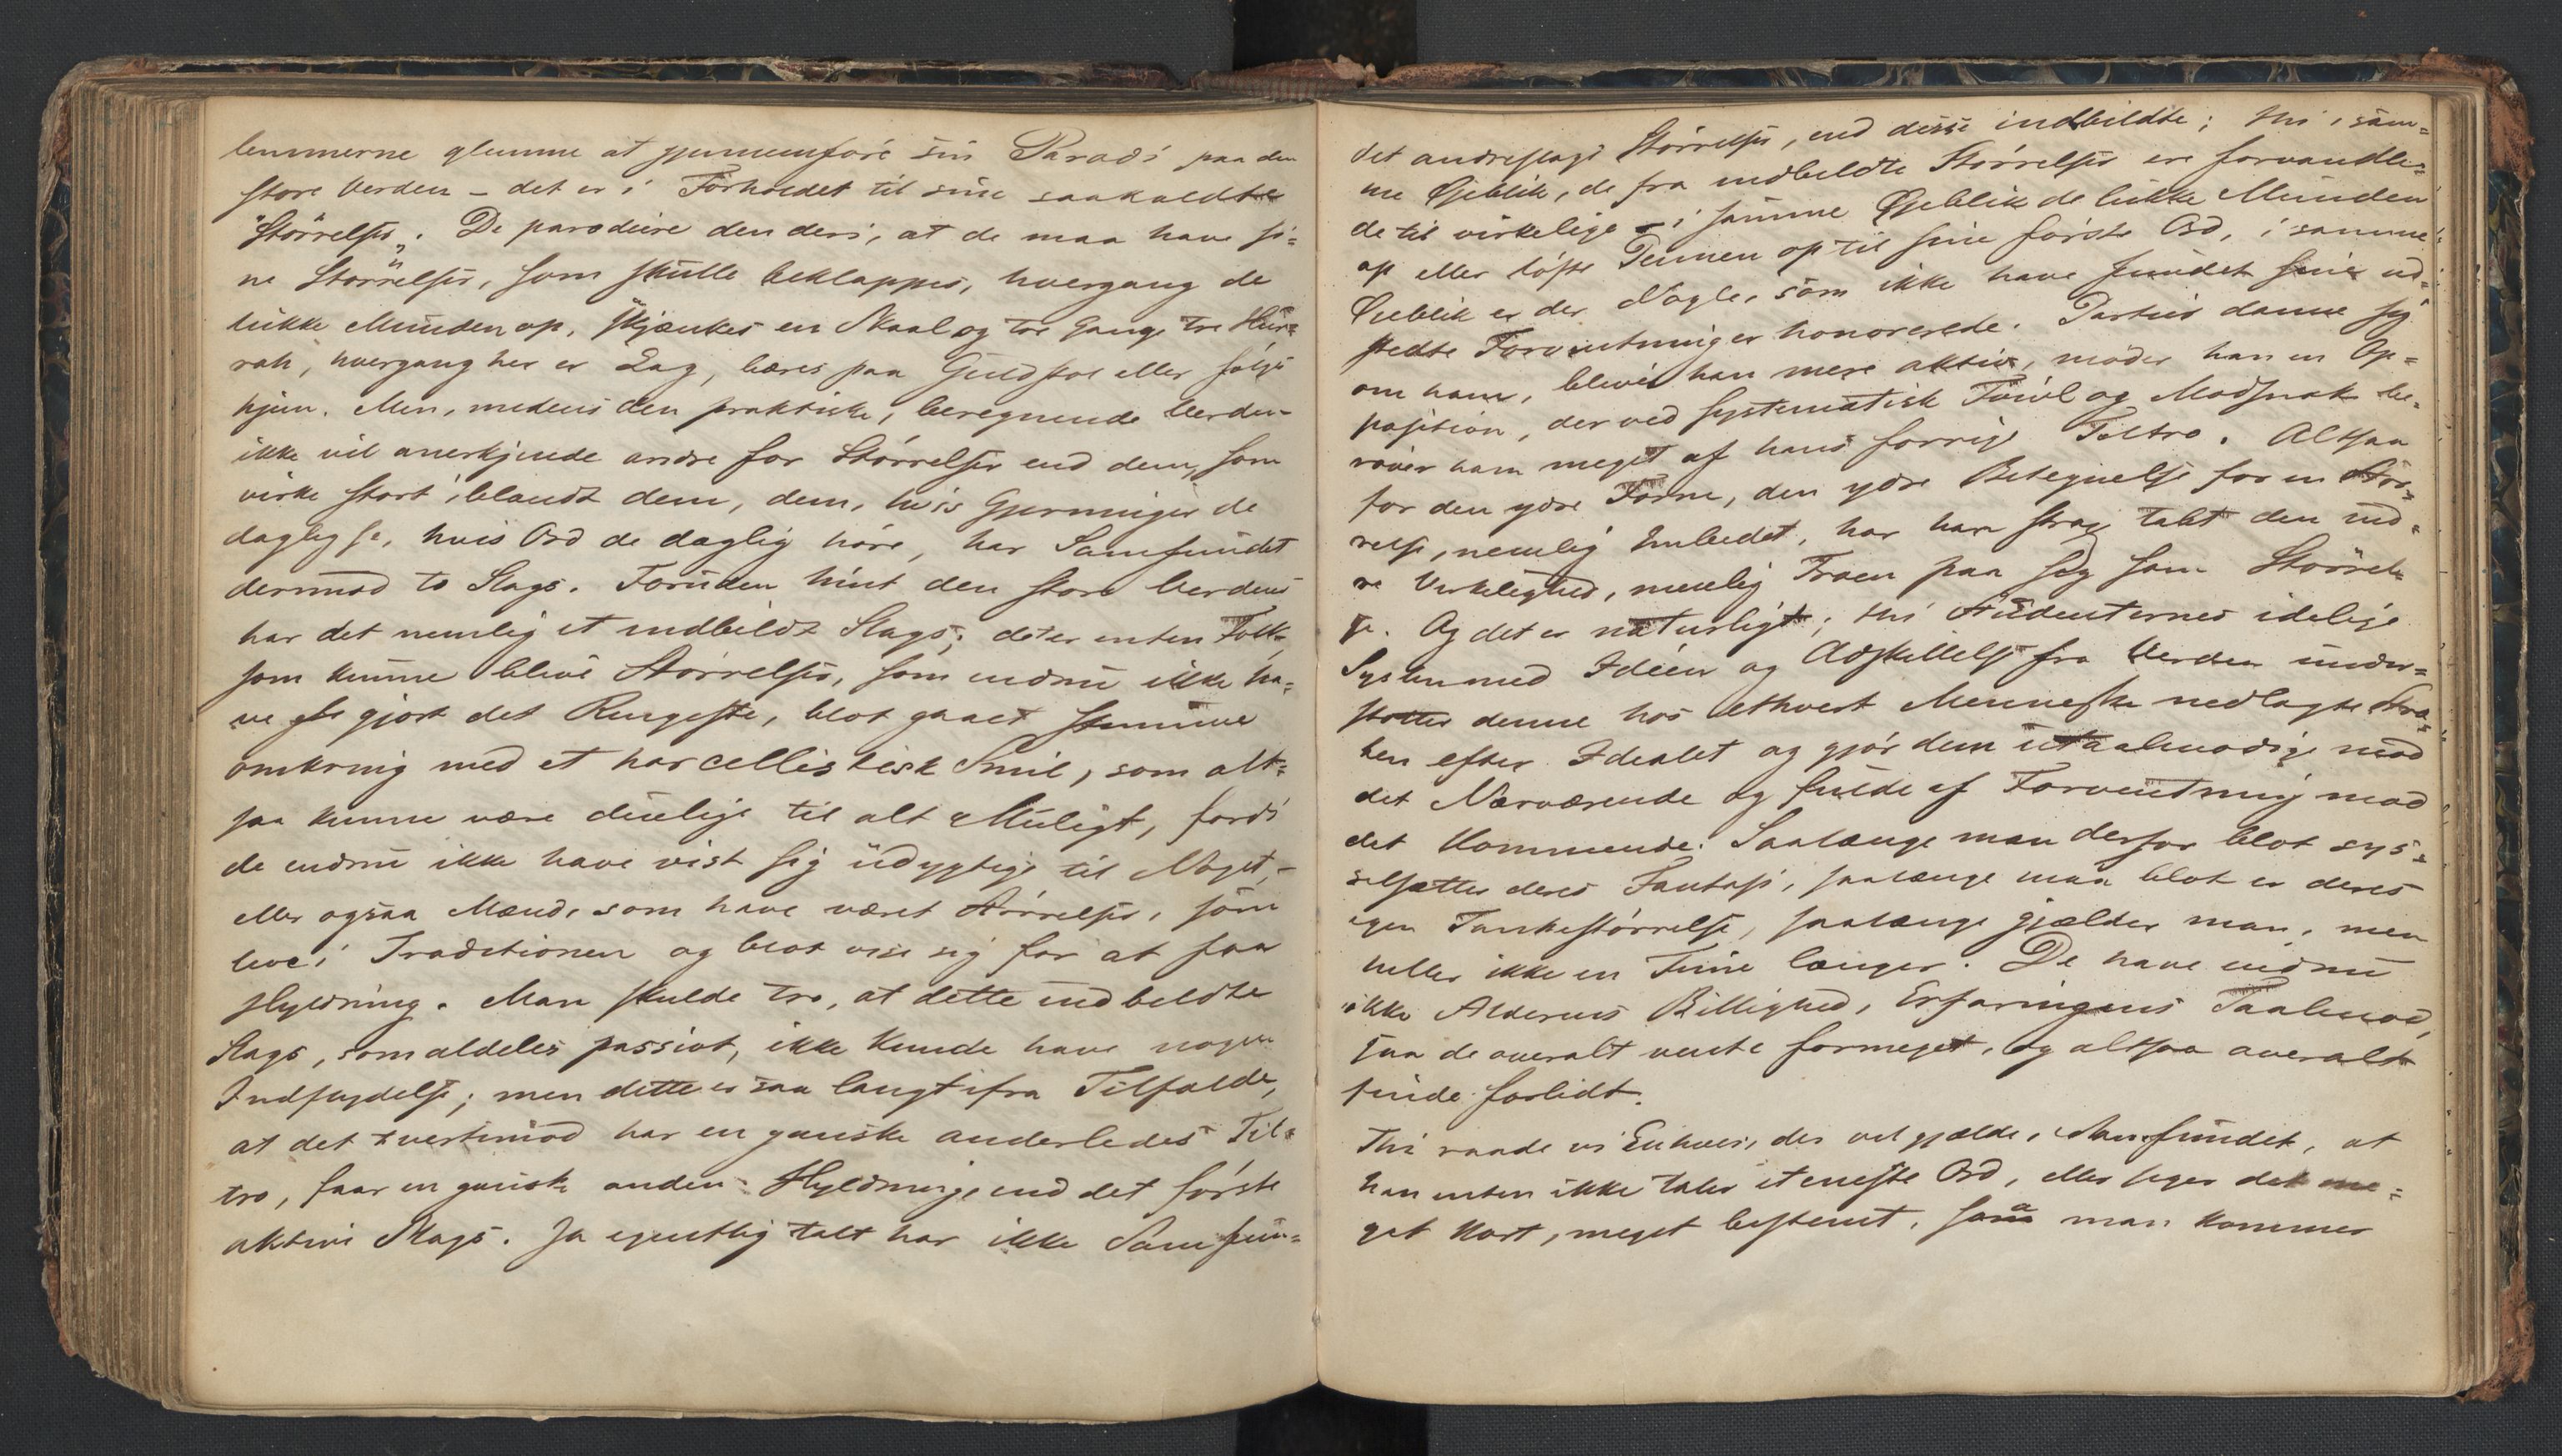 lemmerne glemme at gjennemføre sin Parodi paa den
store Verden – det er i Forholdet til sine saakaldte
"Størrelser". De parodiere den deri, at de maa have si=
ne Størrelser, som skulle beklappes, hvergang de
lukke Munden op, skjænkes en Skaal og tre Gange tre Hur=
rah, hvergang her er Lag, bæres paa Guldstol eller følges
hjem. Men, medens den praktiske, beregnende Verden
ikke vil anerkjende andre for Størrelser end dem, som
virke stort iblandt dem, dem, hvis Gjerninger de
daglig se, hvis Ord de daglig høre, har Samfundet
derimod to Slags. Foruden hint den store Verdens
har det nemlig et indbildt Slags; det er enten Folk,
som kunne blive Størrelser, som endnu ikke ha=
ve gjort det Ringeste, blot gaaet stumme
omkring med et harcellistisk Smil, som alt=
saa kunne være duelige til alt Muligt, fordi
de endnu ikke have vist sig udygtige til Noget, –
eller ogsaa Mænd, som have været Størrelser, som
leve i Traditionen og blot vise sig for at faa
Hyldning. Man skulde tro, at dette indbildte
Slags, som aldeles passivt, ikke kunde have nogen
Indflydelse; men dette er saa langt ifra Tilfælde,
at det tvertimod har en ganske anderledes Til=
tro, faar en ganske anden Hyldning end det første
aktive Slags. Ja egentlig talt har ikke Samfun=
det andreslags Størrelser, end disse indbildte; thi i sam=
me Øjeblik, de fra indbildte Størrelser ere forvandle=
de til virkelige – i samme Øjeblik de lukke Munden
op eller løfte Pennen op til sine første Ord, i samme
Øieblik er der Nogle, som ikke have fundet sine ud=
stedte Forventninger honorerede. Partier danne sig
om ham, bliver han mere aktiv, møder han en Op=
position, der ved systematisk Tvivl og Modsnak be=
røver ham meget af hans forrige Tiltro. Altsaa
for den ydre Form, den ydre Betegnelse for en Stør=
relse, nemlig Embedet, har han strax tabt den ind=
re Virkelighed, nemlig Troen paa sig som Størrel=
se. Og det er naturligt; thi Studenternes idelige
Syslen med Idéen og Adskillelse fra Verden under=
støtter denne hos ethvert Menneske nedlagte Stræ=
ben efter Idealet og gjør dem utaalmodige mod
det Nærværende og fulde af Forventning mod
det Kommende. Saalænge man derfor blot sys=
selsætter deres Fantasi, saalænge man blot er deres
egen Tankestørrelse, saalænge gjælder man, men
heller ikke en Time længer. De have endnu
ikke Alderens Billighed, Erfaringens Taalmod,
saa de overalt vente formeget, og altsaa overalt
finde forlidt.
Thi raade vi Enhver, der vil gjælde i Samfundet, at
han enten ikke taler et eneste Ord, eller siger det me=
get kort, meget bestemt, saa man kommer